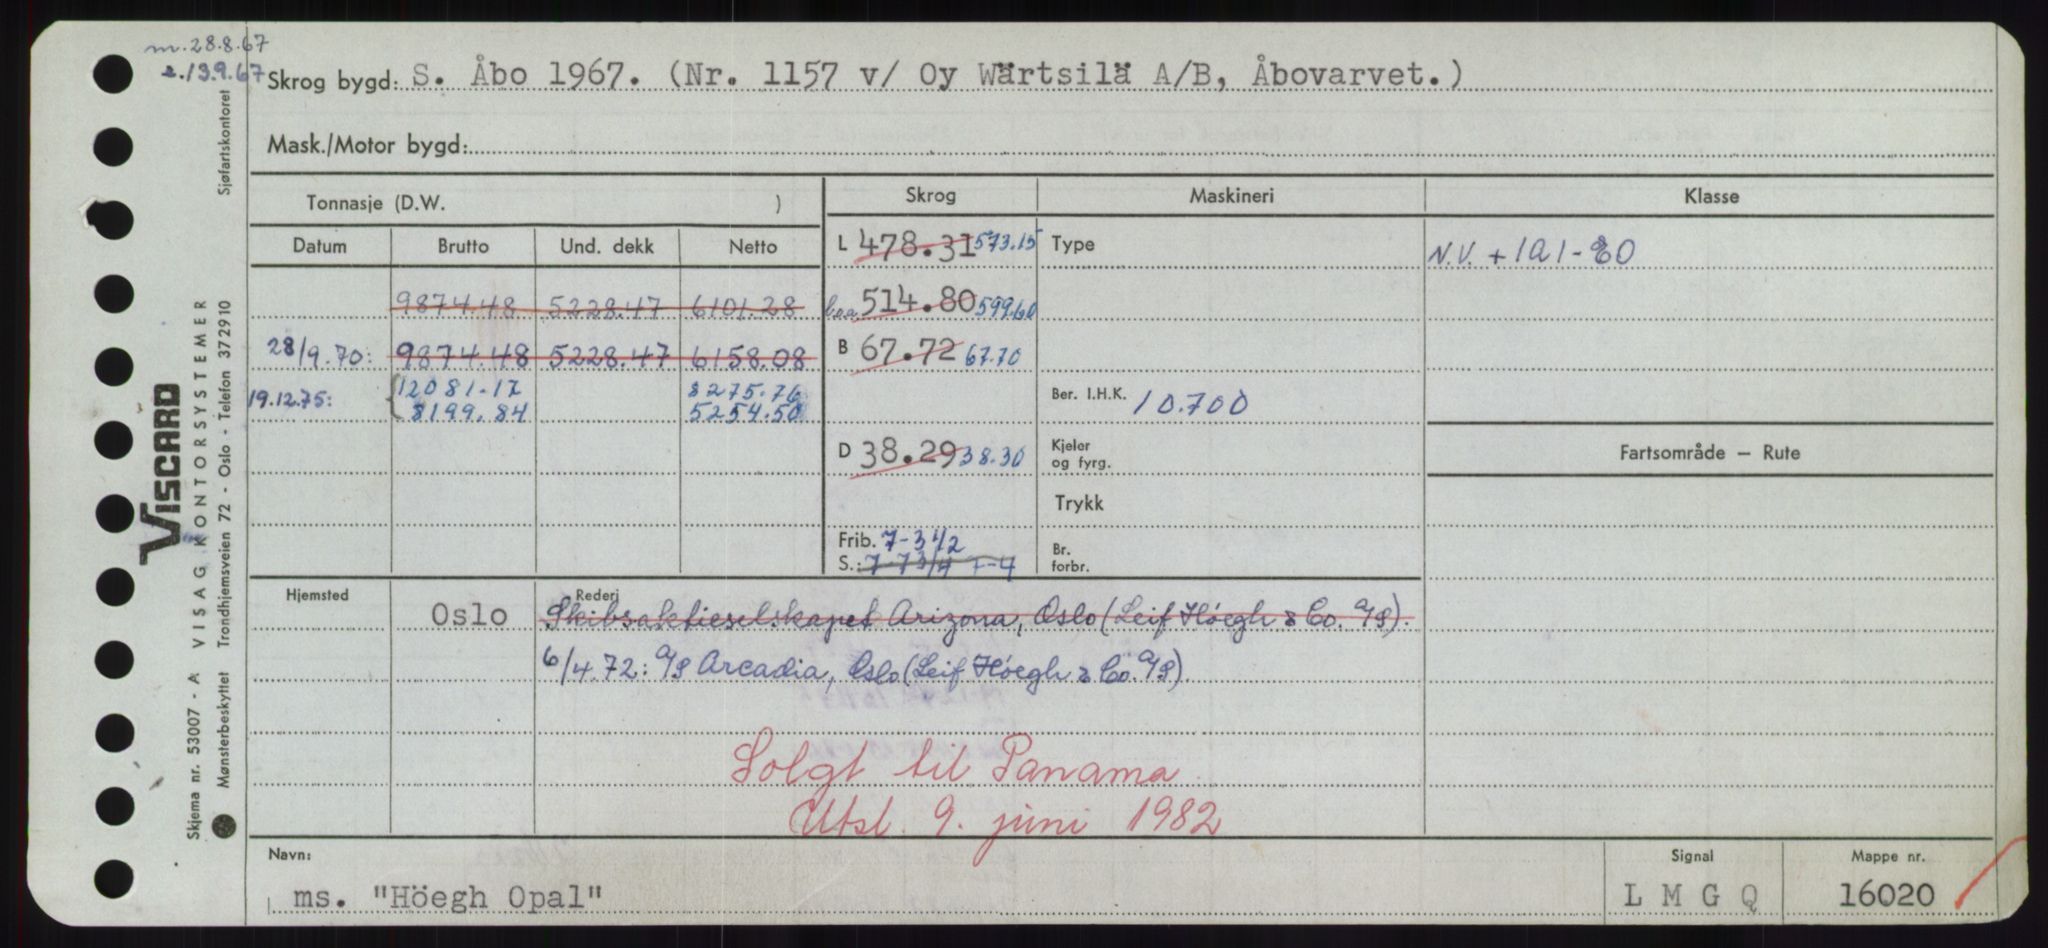 m. 28.8.67
e. 13.9.67
Skrog bygd: S. Åbo 1967. (Nr. 1157 v/ Oy Wärtsilä A/B, Åbovarvet.)
Mask./Motor bygd:
Tonnasje (D.W. )
Skrog Maskineri Klasse
Datum Brutto Und. dekk Netto
L 478.31 573.15 Type N.V. + 1A1-E0
9874.48 5228.47 6101.28
b.o.a. 514.80 599.60
28/9.70: 9874.48 5228.47 6158.08
B 67.72 67.70
19.12.75: { 12081.17 8275.76
8199.84 5254.50
Ber. I.H.K. 10.700
D 38.29 38.30
Kjeler
og fyrg.
Fartsområde – Rute
Trykk
Frib. 7-3 1/2
S.: 7-7 3/4 7-4
Br.
forbr.
Hjemsted Rederi
Oslo Skibsaktieselskapet Arizona, Oslo (Leif Höegh & Co. A/S).
6/4.72: A/S Arcadia, Oslo (Leif Höegh & Co. A/S)
Solgt til Panama
Utsl. 9. juni 1982
Navn: Signal Mappe nr.
ms. "Höegh Opal" L M G Q 16020
VISCARD
VISAG KONTORSYSTEMER
Sjøfartskontoret
Trondhjemsveien 72 - Oslo - Telefon 372910
Skjema nr. 53007 - A
Mønsterbeskyttet